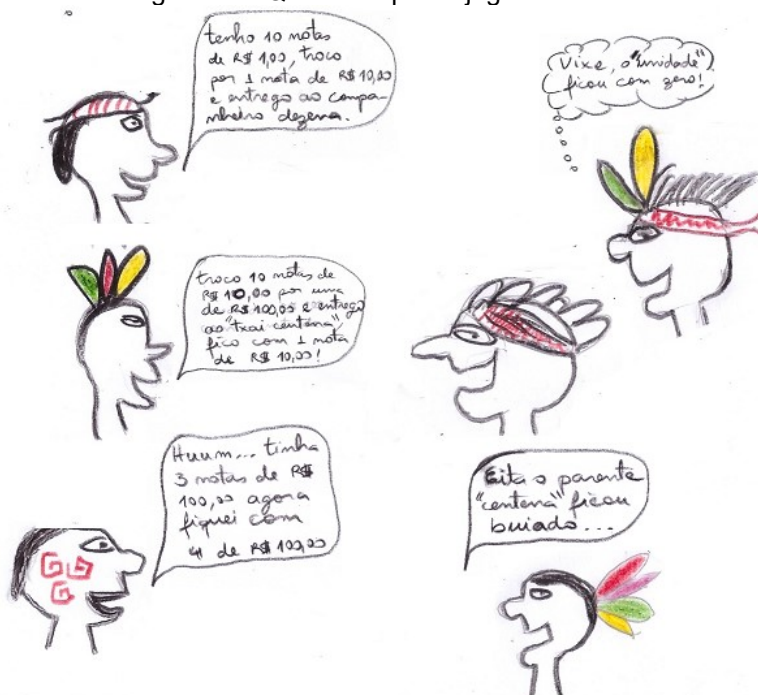 tenho 10 notas
de R$ 1,00, troco
por 1 nota de R$ 10,00
e entrego ao compa-
nheiro dezena.
Vixe, o "unidade"
ficou com zero!
troco 10 notas de
R$ 10,00 por uma
de R$ 100,00 e entrego
ao "txai centena",
fico com 1 nota
de R$ 10,00!
Huum... tinha
3 notas de R$
100,00 agora
fiquei com
4 de R$ 100,00
Eita o parente
"centena" ficou
buiado...